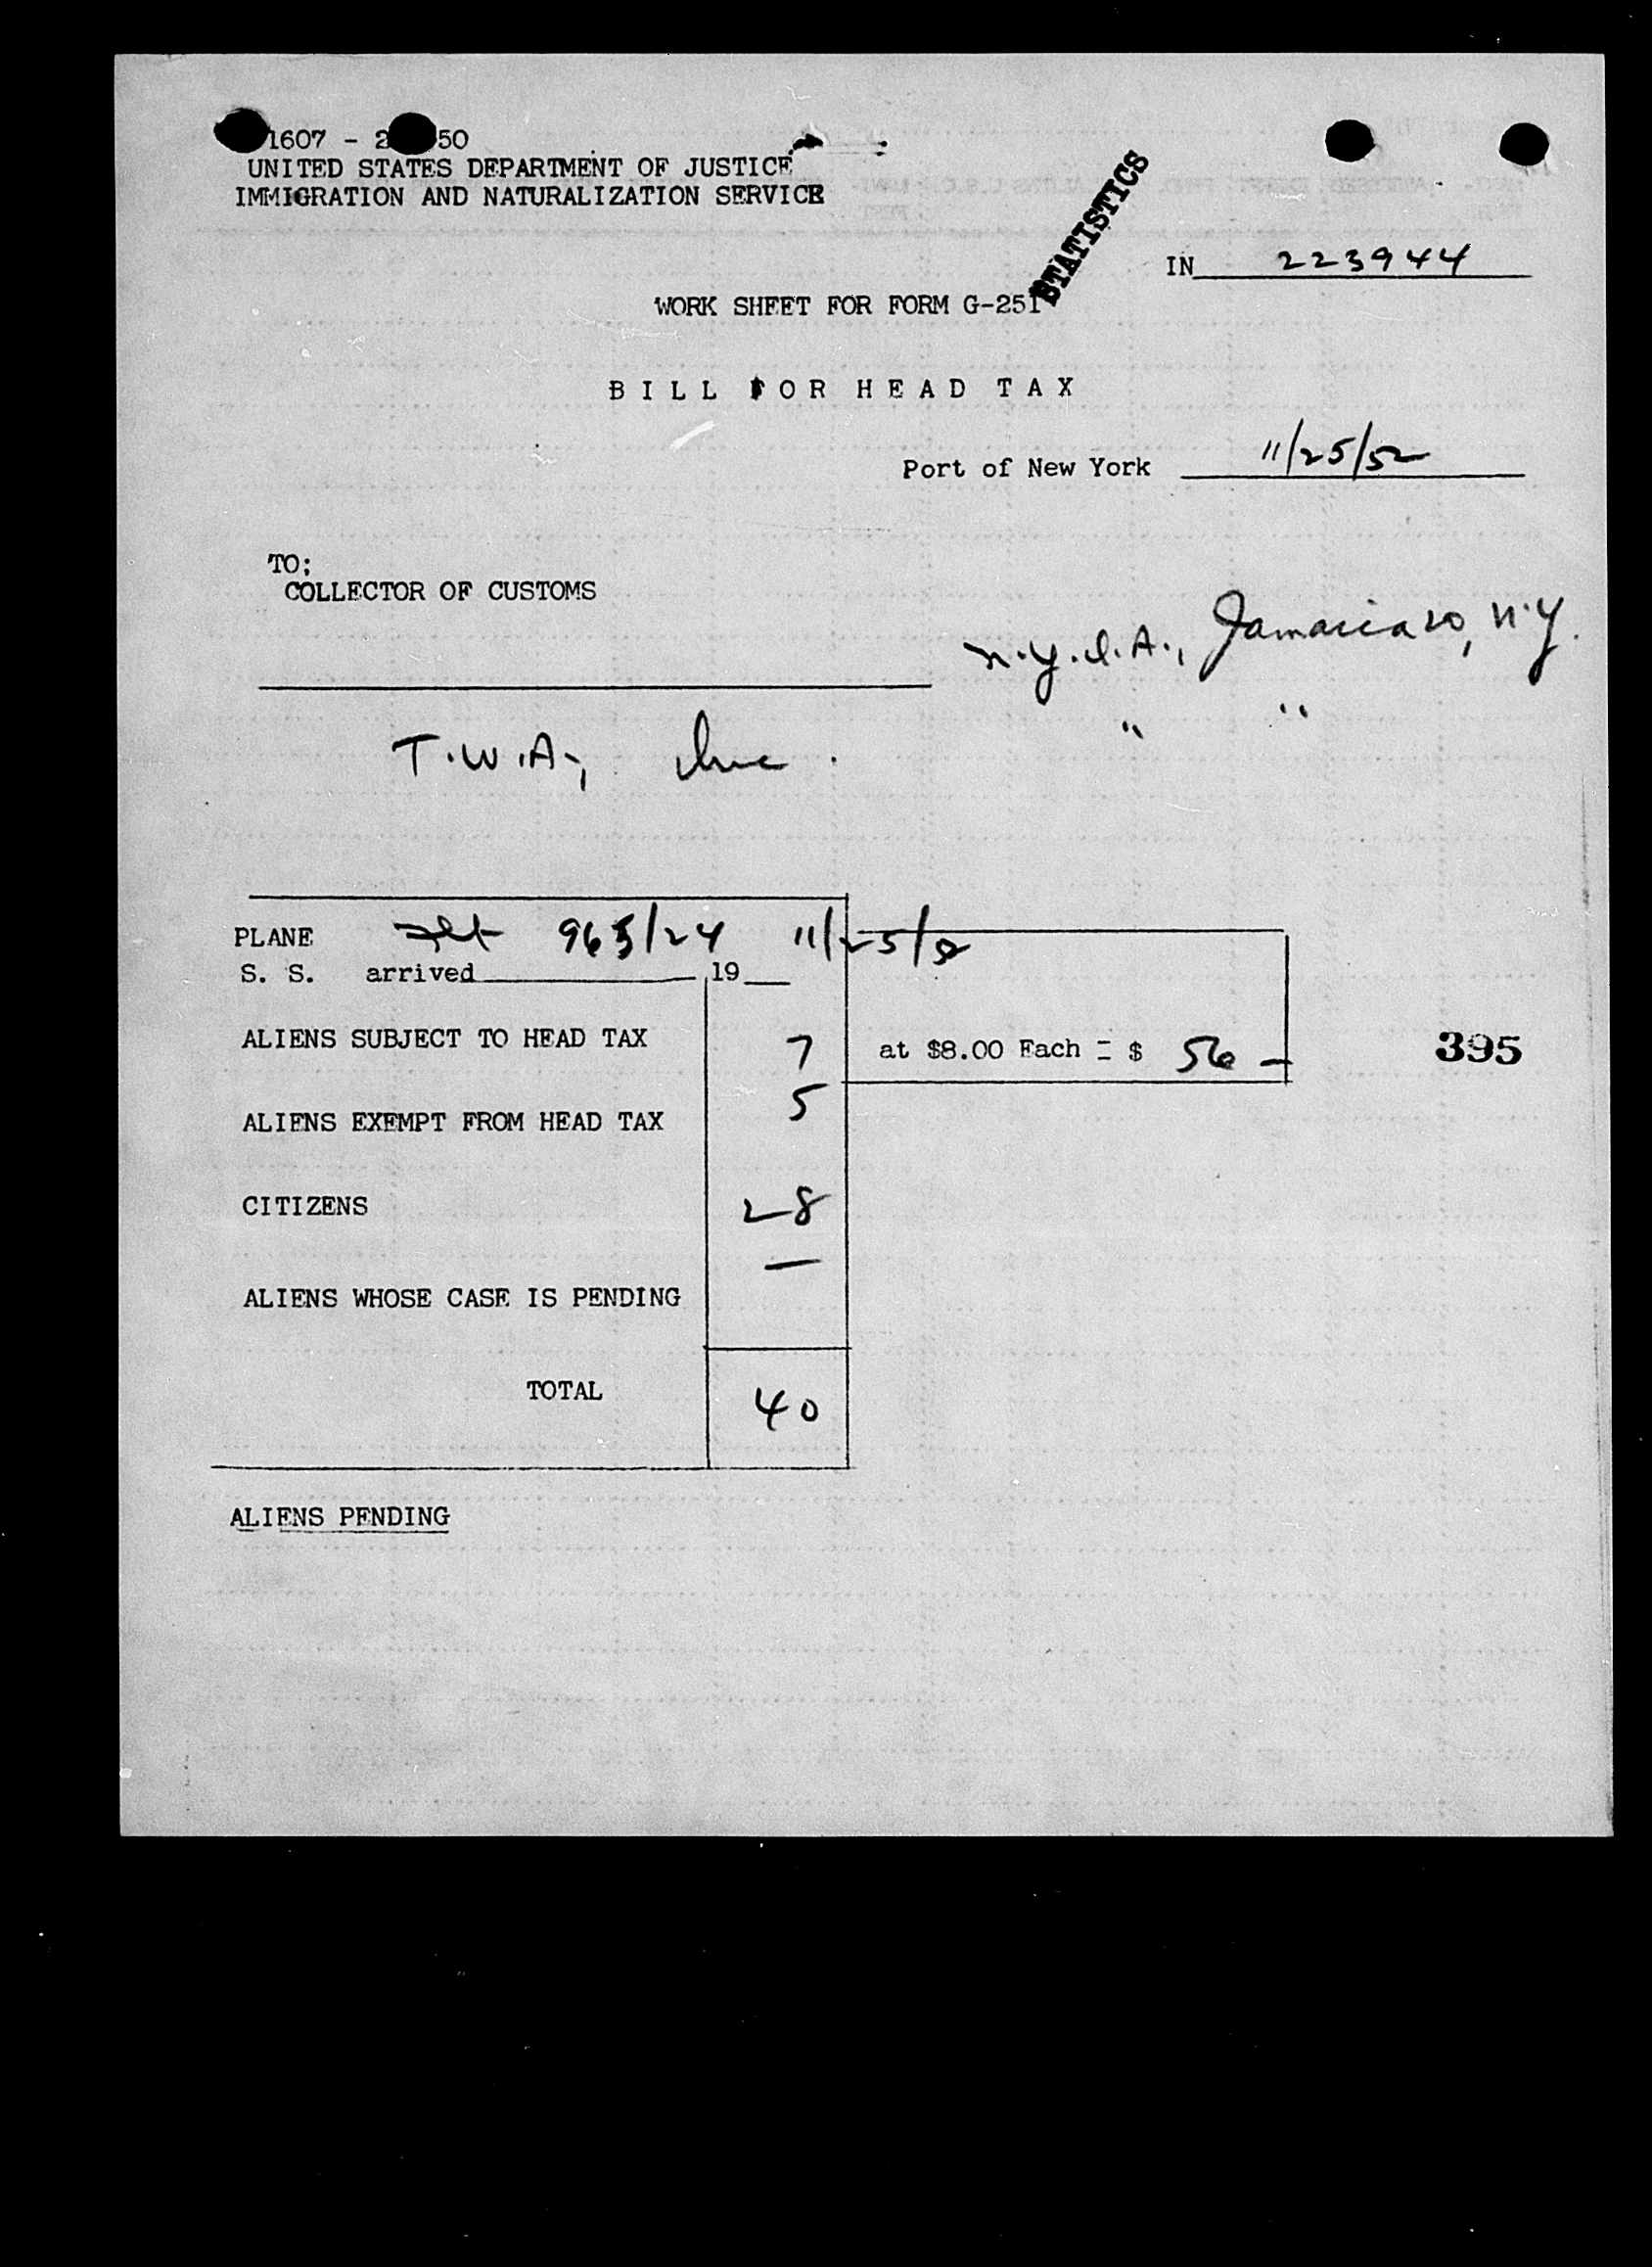 1607 - 2 50
UNITED STATES DEPARTMENT OF JUSTICE
IMMIGRATION AND NATURALIZATION SERVICE
STATISTICS
IN 223944
WORK SHEET FOR FORM G-251
BILL FOR HEAD TAX
Port of New York 11/25/52
TO;
COLLECTOR OF CUSTOMS
N.Y.I.A., Jamaica 20, N.Y.
" "
T.W.A., Inc.
PLANE Flt 965/24 11/25/52
S. S. arrived 19
ALIENS SUBJECT TO HEAD TAX 7 at $8.00 Each = $ 56 —
395
ALIENS EXEMPT FROM HEAD TAX 5
CITIZENS 28
ALIENS WHOSE CASE IS PENDING —
TOTAL 40
ALIENS PENDING